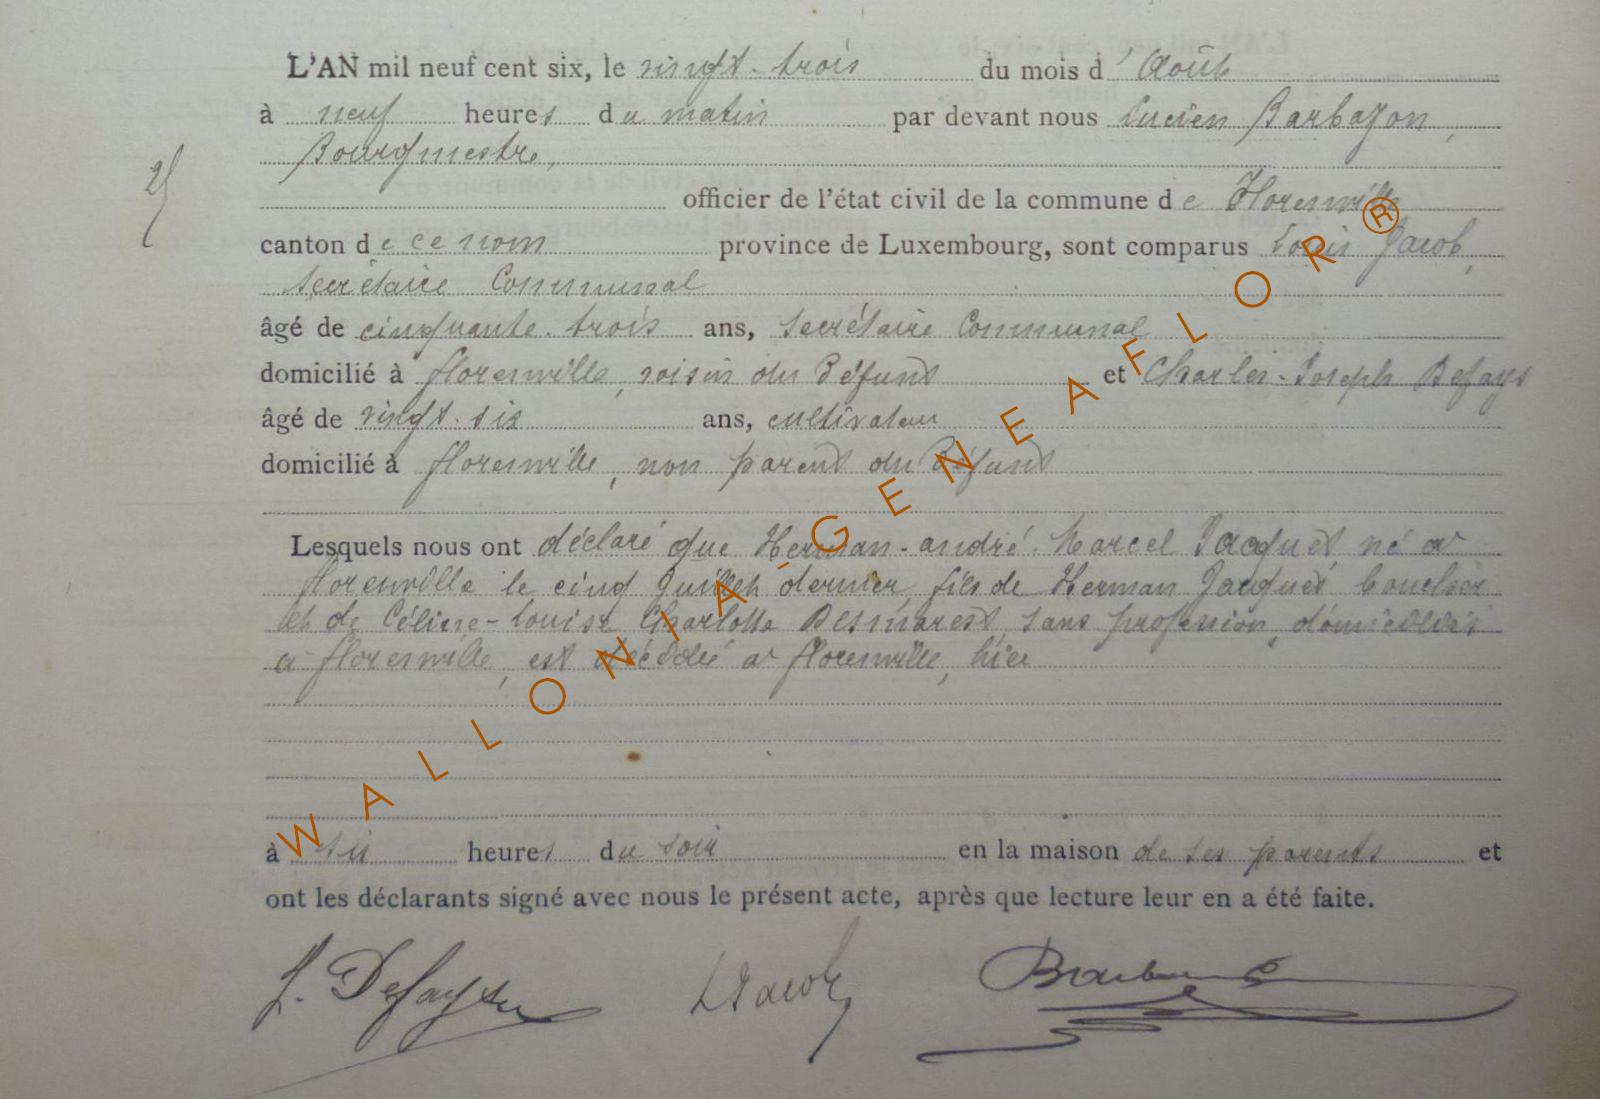 L'AN mil neuf cent six, le vingt-trois du mois d'Août
à neuf heures du matin par devant nous Lucien Barbazon,
Bourgmestre,
officier de l'état civil de la commune de Florenville
canton de ce nom province de Luxembourg, sont comparus Louis Jacob,
secrétaire Communal
âgé de cinquante-trois ans, secrétaire Communal
domicilié à florenville, voisin du Défunt et Charles-Joseph Defays
âgé de vingt-six ans, cultivateur
domicilié à florenville, non parent du Défunt
Lesquels nous ont déclaré que Herman-andré-Marcel Jacques né à
florenville le cinq Juillet dernier, fils de Herman Jacques boucher
et de Céline-Louise Charlotte Desmarest, sans profession, domiciliés
à florenville, est décédé à florenville, hier
à six heures du soir en la maison de ses parents et
ont les déclarants signé avec nous le présent acte, après que lecture leur en a été faite.
J. Defays LJacob
WALLONIA-GENEAFLOR®